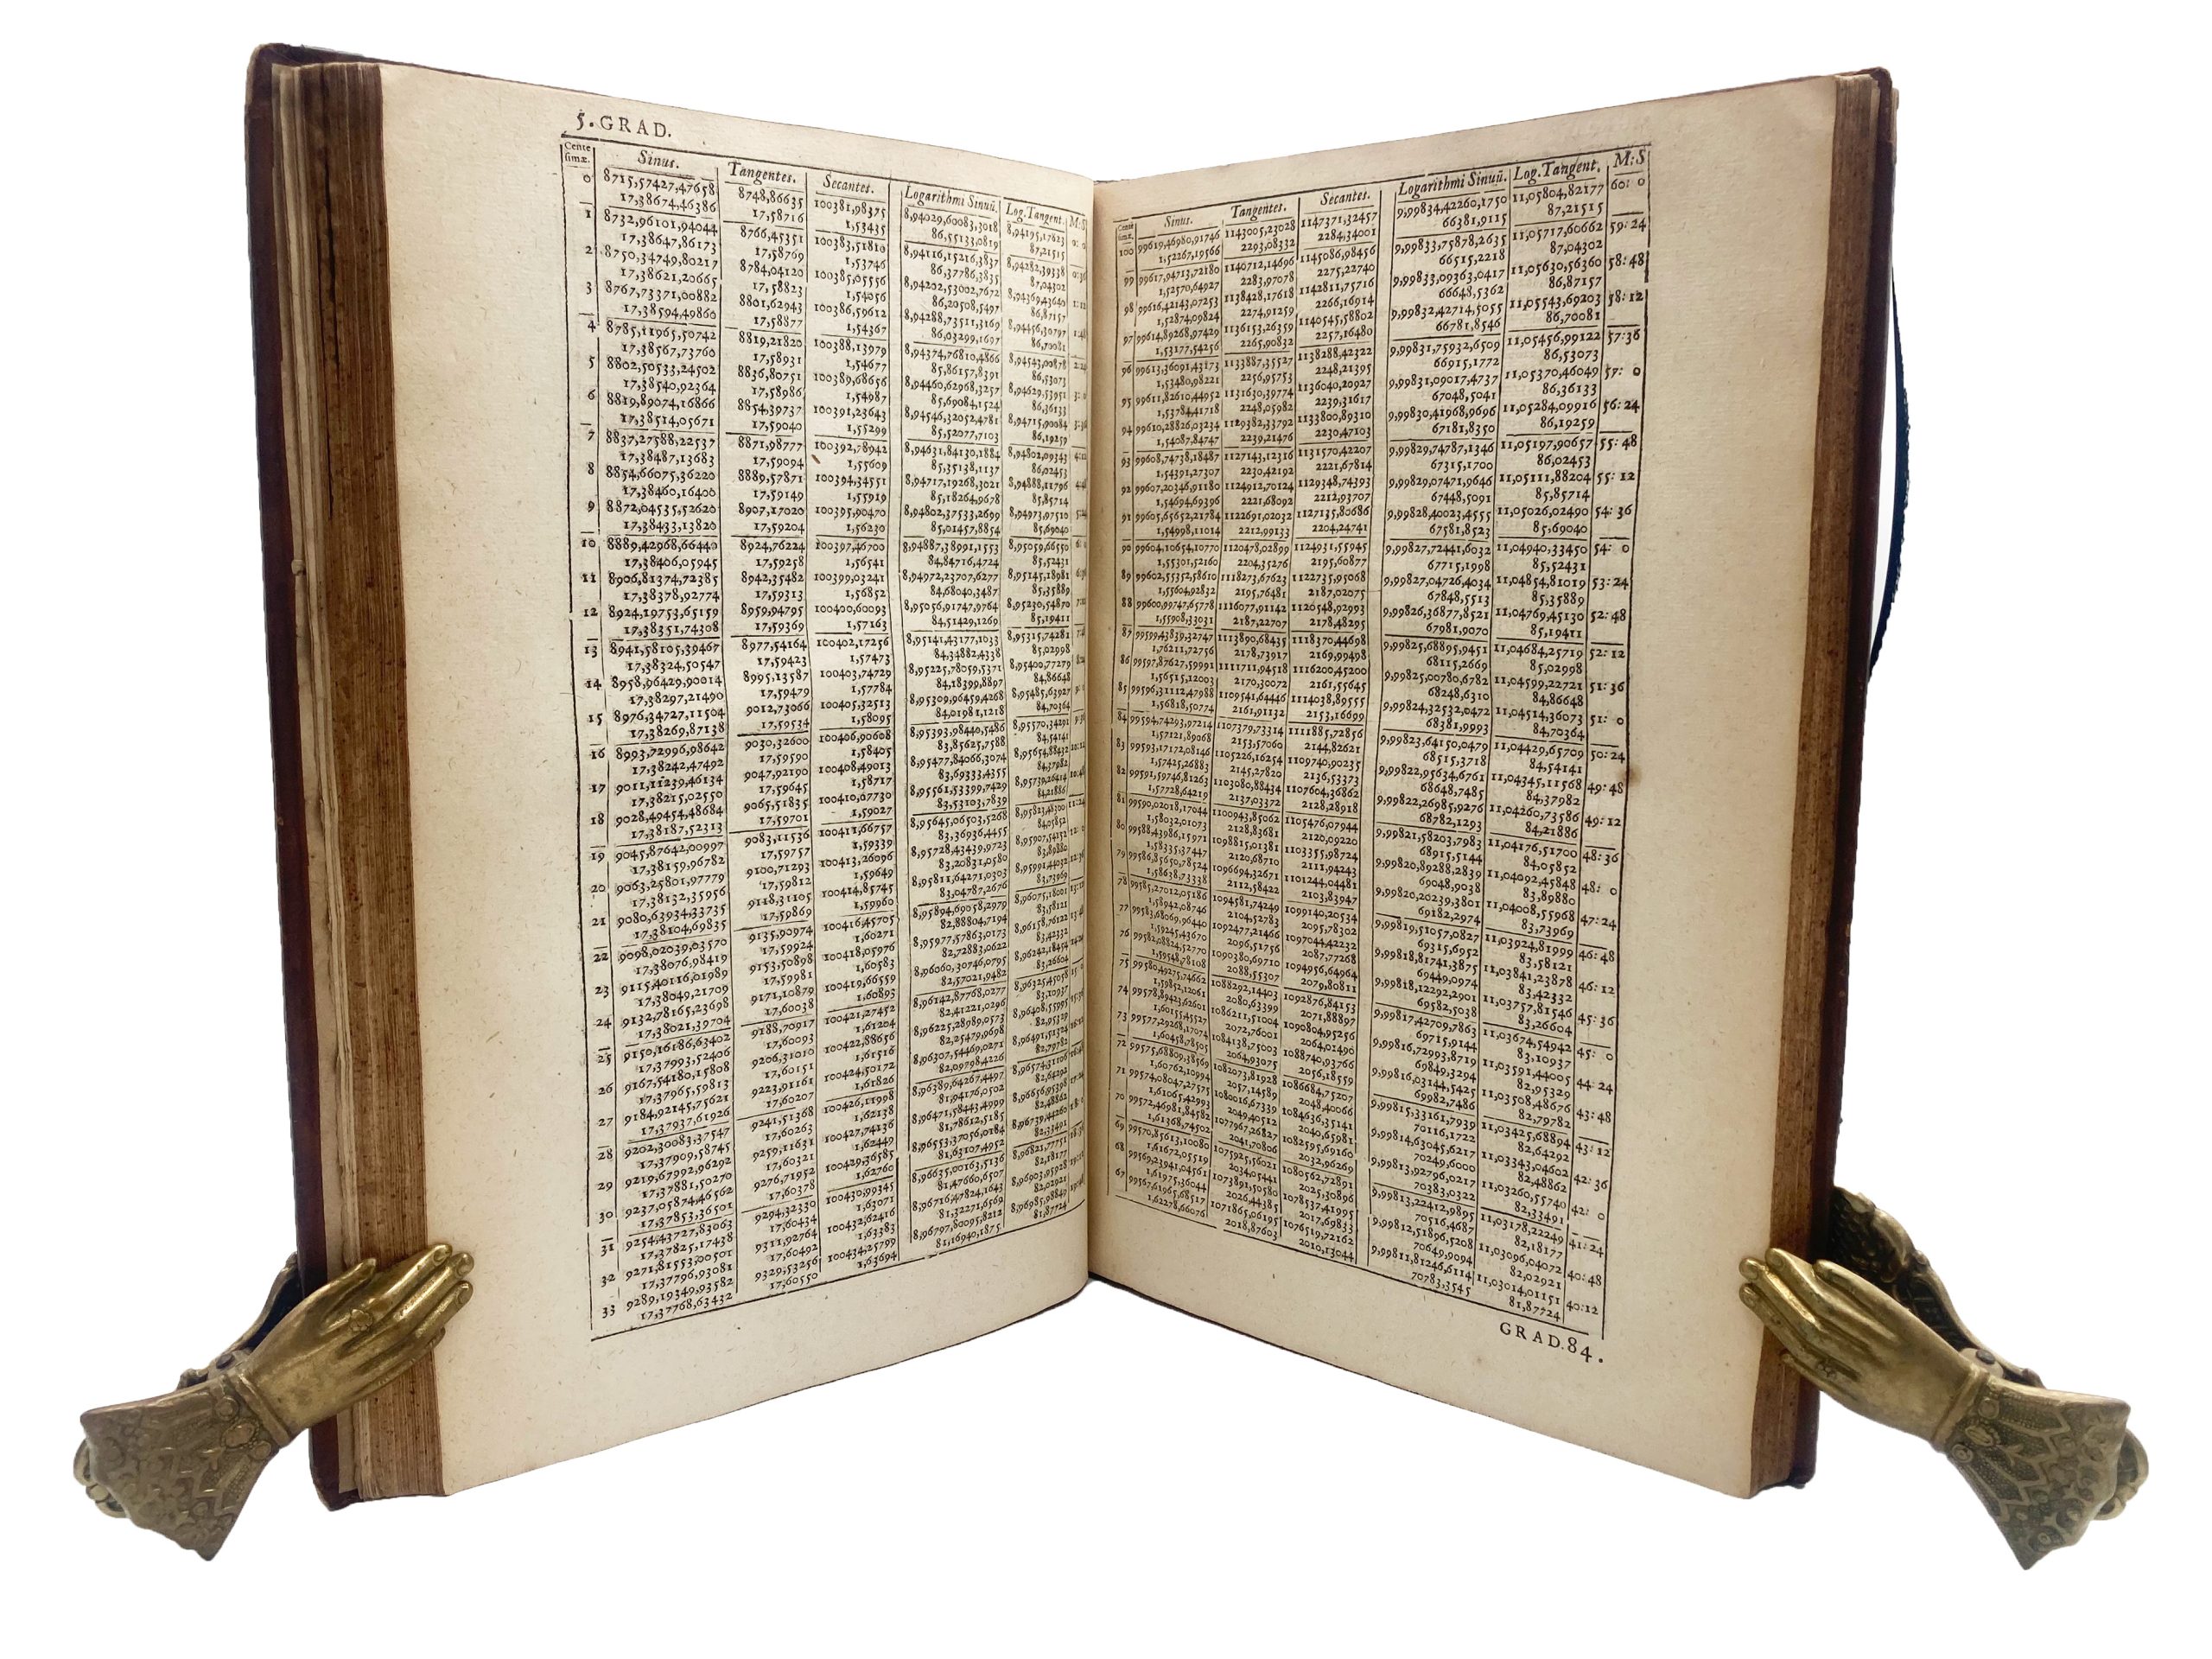 5. GRAD.
Centesimæ. Sinus. Tangentes. Secantes. Logarithmi Sinuū. Log. Tangent. M:S
0 8715,57427,47658 8748,86635 100381,98375 8,94029,60083,3018 8,94195,17623 0: 0
17,38674,46386 17,58716 1,53435 86,55133,0819 87,21515
1 8732,96101,94044 8766,45351 100383,51810 8,94116,15216,3837 8,94282,39338
17,38647,86173 17,58769 1,53746 86,37786,3835 87,04302
2 8750,34749,80217 8784,04120 100385,05556 8,94202,53002,7672 8,94369,43640
17,38621,20665 17,58823 1,54056 86,20508,5497 86,87157
3 8767,73371,00882 8801,62943 100386,59612 8,94288,73511,3169 8,94456,30797
17,38594,49860 17,58877 1,54367 86,03299,1697 86,70081
4 8785,11965,50742 8819,21820 100388,13979 8,94374,76810,4866 8,94543,00878
17,38567,73760 17,58931 1,54677 85,86157,8391 86,53073
5 8802,50533,24502 8836,80751 100389,68656 8,94460,62968,3257 8,94629,53951
17,38540,92364 17,58986 1,54987 85,69084,1524 86,36133
6 8819,89074,16866 8854,39737 100391,23643 8,94546,32052,4781 8,94715,90084
17,38514,05671 17,59040 1,55299 85,52077,7103 86,19259
7 8837,27588,22537 8871,98777 100392,78942 8,94631,84130,1884 8,94802,09343
17,38487,13683 17,59094 1,55609 85,35138,1137 86,02453
8 8854,66075,36220 8889,57871 100394,34551 8,94717,19268,3021 8,94888,11796
17,38460,16400 17,59149 1,55919 85,18264,9678 85,85714
9 8872,04535,52620 8907,17020 100395,90470 8,94802,37533,2699 8,94973,97510
17,38433,13820 17,59204 1,56230 85,01457,8854 85,69040
10 8889,42968,66440 8924,76224 100397,46700 8,94887,38991,1553 8,95059,66550
17,38406,05945 17,59258 1,56541 84,84716,4724 85,52431
11 8906,81374,72385 8942,35482 100399,03241 8,94972,23707,6277 8,95145,18981
17,38378,92774 17,59313 1,56852 84,68040,3487 85,35889
12 8924,19753,65159 8959,94795 100400,60093 8,95056,91747,9764 8,95230,54870
17,38351,74308 17,59369 1,57163 84,51429,1269 85,19411
13 8941,58105,39467 8977,54164 100402,17256 8,95141,43177,1033 8,95315,74281
17,38324,50547 17,59423 1,57473 84,34882,4338 85,02998
14 8958,96429,90014 8995,13587 100403,74729 8,95225,78059,5371 8,95400,77279
17,38297,21490 17,59479 1,57784 84,18399,8897 84,86648
15 8976,34727,11504 9012,73066 100405,32513 8,95309,96459,4268 8,95485,63927
17,38269,87138 17,59534 1,58095 84,01981,1218 84,70364
16 8993,72996,98642 9030,32600 100406,90608 8,95393,98440,5486 8,95570,34291
17,38242,47492 17,59590 1,58405 83,85625,7588 84,54141
17 9011,11239,46134 9047,92190 100408,49013 8,95477,84066,3074 8,95654,88432
17,38215,02550 17,59645 1,58717 83,69333,4355 84,37982
18 9028,49454,48684 9065,51835 100410,07730 8,95561,53399,7429 8,95739,26414
17,38187,52313 17,59701 1,59027 83,53103,7839 84,21886
19 9045,87642,00997 9083,11536 100411,66757 8,95645,06503,5268 8,95823,48300
17,38159,96782 17,59757 1,59339 83,36936,4455 84,05852
20 9063,25801,97779 9100,71293 100413,26096 8,95728,43439,9723 8,95907,54152
17,38132,35956 17,59812 1,59649 83,20831,0580 83,89880
21 9080,63934,33735 9118,31105 100414,85745 8,95811,64271,0303 8,95991,44032
17,38104,69835 17,59869 1,59960 83,04787,2676 83,73969
22 9098,02039,03570 9135,90974 100416,45705 8,95894,69058,2979 8,96075,18001
17,38076,98419 17,59924 1,60271 82,88804,7194 83,58121
23 9115,40116,01989 9153,50898 100418,05976 8,95977,57863,0173 8,96158,76122
17,38049,21709 17,59981 1,60583 82,72883,0622 83,42332
24 9132,78165,23698 9171,10879 100419,66559 8,96060,30746,0795 8,96242,18454
17,38021,39704 17,60038 1,60893 82,57021,9482 83,26604
25 9150,16186,63402 9188,70917 100421,27452 8,96142,87768,0277 8,96325,45058
17,37993,52406 17,60093 1,61204 82,41221,0296 83,10937
26 9167,54180,15808 9206,31010 100422,88656 8,96225,28989,0573 8,96408,55995
17,37965,59813 17,60151 1,61516 82,25479,9698 82,95329
27 9184,92145,75621 9223,91161 100424,50172 8,96307,54469,0271 8,96491,51324
17,37937,61926 17,60207 1,61826 82,09798,4226 82,79782
28 9202,30083,37547 9241,51368 100426,11998 8,96389,64267,4497 8,96574,31106
17,37909,58745 17,60263 1,62138 81,94176,0502 82,64292
29 9219,67992,96292 9259,11631 100427,74136 8,96471,58443,4999 8,96656,95398
17,37881,50270 17,60321 1,62449 81,78612,5185 82,48862
30 9237,05874,46562 9276,71952 100429,36585 8,96553,37056,0184 8,96739,44260
17,37853,36501 17,60378 1,62760 81,63107,4952 82,33491
31 9254,43727,83063 9294,32330 100430,99345 8,96635,00163,5136 8,96821,77751
17,37825,17438 17,60434 1,63071 81,47660,6507 82,18177
32 9271,81553,00501 9311,92764 100432,62416 8,96716,47824,1643 8,96903,95928
17,37796,93081 17,60492 1,63383 81,32271,6569 82,02921
33 9289,19349,93582 9329,53256 100434,25799 8,96797,80095,8212 8,96985,98849
17,37768,63432 17,60550 1,63694 81,16940,1875 81,87724
Centesimæ. Sinus. Tangentes. Secantes. Logarithmi Sinuū. Log. Tangent. M:S
100 99619,46980,91746 1143005,23028 1147371,32457 9,99834,42260,1750 11,05804,82177 60: 0
1,52267,19566 2293,08332 2284,34001 66381,9115 87,21515
99 99617,94713,72180 1140712,14696 1145086,98456 9,99833,75878,2635 11,05717,60662 59:24
1,52570,64927 2283,97078 2275,22740 66515,2218 87,04302
98 99616,42143,07253 1138428,17618 1142811,75716 9,99833,09363,0417 11,05630,56360 58:48
1,52874,09824 2274,91259 2266,16914 66648,5362 86,87157
97 99614,89268,97429 1136153,26359 1140545,58802 9,99832,42714,5055 11,05543,69203 58:12
1,53177,54256 2265,90832 2257,16480 66781,8546 86,70081
96 99613,36091,43173 1133887,35527 1138288,42322 9,99831,75932,6509 11,05456,99122 57:36
1,53480,98221 2256,95753 2248,21395 66915,1772 86,53073
95 99611,82610,44952 1131630,39774 1136040,20927 9,99831,09017,4737 11,05370,46049 57: 0
1,53784,41718 2248,05982 2239,31617 67048,5041 86,36133
94 99610,28826,03234 1129382,33792 1133800,89310 9,99830,41968,9696 11,05284,09916 56:24
1,54087,84747 2239,21476 2230,47103 67181,8350 86,19259
93 99608,74738,18487 1127143,12316 1131570,42207 9,99829,74787,1346 11,05197,90657 55:48
1,54391,27307 2230,42192 2221,67814 67315,1700 86,02453
92 99607,20346,91180 1124912,70124 1129348,74393 9,99829,07471,9646 11,05111,88204 55:12
1,54694,69396 2221,68092 2212,93707 67448,5091 85,85714
91 99605,65652,21784 1122691,02032 1127135,80686 9,99828,40023,4555 11,05026,02490 54:36
1,54998,11014 2212,99133 2204,24741 67581,8523 85,69040
90 99604,10654,10770 1120478,02899 1124931,55945 9,99827,72441,6032 11,04940,33450 54: 0
1,55301,52160 2204,35276 2195,60877 67715,1998 85,52431
89 99602,55352,58610 1118273,67623 1122735,95068 9,99827,04726,4034 11,04854,81019 53:24
1,55604,92832 2195,76481 2187,02075 67848,5513 85,35889
88 99600,99747,65778 1116077,91142 1120548,92993 9,99826,36877,8521 11,04769,45130 52:48
1,55908,33031 2187,22707 2178,48295 67981,9070 85,19411
87 99599,43839,32747 1113890,68435 1118370,44698 9,99825,68895,9451 11,04684,25719 52:12
1,76211,72756 2178,73917 2169,99498 68115,2669 85,02998
86 99597,87627,59991 1111711,94518 1116200,45200 9,99825,00780,6782 11,04599,22721 51:36
1,56515,12003 2170,30072 2161,55645 68248,6310 84,86648
85 99596,31112,47988 1109541,64446 1114038,89555 9,99824,32532,0472 11,04514,36073 51: 0
1,56818,50774 2161,91132 2153,16699 68381,9993 84,70364
84 99594,74293,97214 1107379,73314 1111885,72856 9,99823,64150,0479 11,04429,65709 50:24
1,57121,89068 2153,57060 2144,82621 68515,3718 84,54141
83 99593,17172,08146 1105226,16254 1109740,90235 9,99822,95634,6761 11,04345,11568 49:48
1,57425,26883 2145,27820 2136,53373 68648,7485 84,37982
82 99591,59746,81263 1103080,88434 1107604,36862 9,99822,26985,9276 11,04260,73586 49:12
1,57728,64219 2137,03372 2128,28918 68782,1293 84,21886
81 99590,02018,17044 1100943,85062 1105476,07944 9,99821,58203,7983 11,04176,51700 48:36
1,58032,01073 2128,83681 2120,09220 68915,5144 84,05852
80 99588,43986,15971 1098815,01381 1103355,98724 9,99820,89288,2839 11,04092,45848 48: 0
1,58335,37447 2120,68710 2111,94243 69048,9038 83,89880
79 99586,85650,78524 1096694,32671 1101244,04481 9,99820,20239,3801 11,04008,55968 47:24
1,58638,73338 2112,58422 2103,83947 69182,2974 83,73969
78 99585,27012,05186 1094581,74249 1099140,20534 9,99819,51057,0827 11,03924,81999 46:48
1,58942,08746 2104,52783 2095,78302 69315,6952 83,58121
77 99583,68069,96440 1092477,21466 1097044,42232 9,99818,81741,3875 11,03841,23878 46:12
1,59245,43670 2096,51756 2087,77268 69449,0974 83,42332
76 99582,08824,52770 1090380,69710 1094956,64964 9,99818,12292,2901 11,03757,81546 45:36
1,59548,78108 2088,55307 2079,80811 69582,5038 83,26604
75 99580,49275,74662 1088292,14403 1092876,84153 9,99817,42709,7863 11,03674,54942 45: 0
1,59852,12061 2080,63399 2071,88897 69715,9144 83,10937
74 99578,89423,62601 1086211,51004 1090804,95256 9,99816,72993,8719 11,03591,44005 44:24
1,60155,45527 2072,76001 2064,01490 69849,3294 82,95329
73 99577,29268,17074 1084138,75003 1088740,93766 9,99816,03144,5425 11,03508,48676 43:48
1,60458,78505 2064,93075 2056,18559 69982,7486 82,79782
72 99575,68809,38569 1082073,81928 1086684,75207 9,99815,33161,7939 11,03425,68894 43:12
1,60762,10994 2057,14589 2048,40066 70116,1722 82,64292
71 99574,08047,27575 1080016,67339 1084636,35141 9,99814,63045,6217 11,03343,04602 42:36
1,61065,42993 2049,40512 2040,65981 70249,6000 82,48862
70 99572,46981,84582 1077967,26827 1082595,69160 9,99813,92796,0217 11,03260,55740 42: 0
1,61368,74502 2041,70806 2032,96269 70383,0322 82,33491
69 99570,85613,10080 1075925,56021 1080562,72891 9,99813,22412,9895 11,03178,22249 41:24
1,61672,05519 2034,05441 2025,30896 70516,4687 82,18177
68 99569,23941,04561 1073891,50580 1078537,41995 9,99812,51896,5208 11,03096,04072 40:48
1,61975,36044 2026,44385 2017,69833 70649,9094 82,02921
67 99567,61965,68517 1071865,06195 1076519,72162 9,99811,81246,6114 11,03014,01151 40:12
1,62278,66076 2018,87603 2010,13044 70783,3545 81,87724
GRAD. 84.